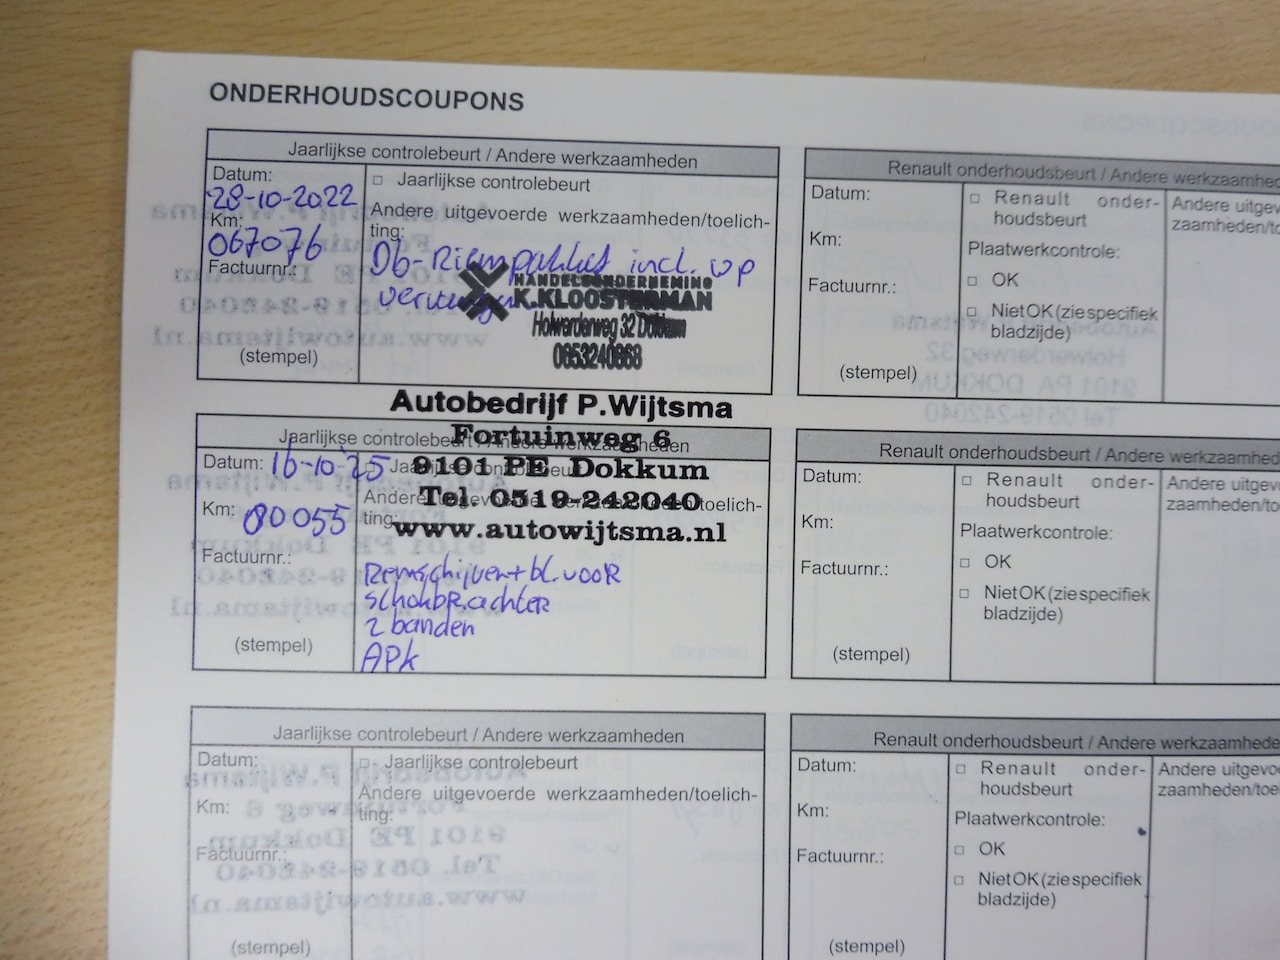 ONDERHOUDSCOUPONS
Jaarlijkse controlebeurt / Andere werkzaamheden
Datum:
28-10-2022
Km:
067076
Factuurnr.:
(stempel)
□ Jaarlijkse controlebeurt
Andere uitgevoerde werkzaamheden/toelich-
ting:
Db-Riempakket incl. wp
vervangen
HANDELSONDERNEMING
K.KLOOSTERMAN
Holwarderweg 32 Dokkum
0653240868
Renault onderhoudsbeurt / Andere werkzaamhe
Datum:
Km:
Factuurnr.:
(stempel)
□ Renault onder-
houdsbeurt
Plaatwerkcontrole:
□ OK
□ Niet OK (zie specifiek
bladzijde)
Andere uitgev
zaamheden/to
Autobedrijf P.Wijtsma
Fortuinweg 6
9101 PE Dokkum
Tel. 0519-242040
www.autowijtsma.nl
Jaarlijkse controlebeurt / Andere werkzaamheden
Datum: 16-10-'25
Km: 80055
Factuurnr.:
(stempel)
□ Jaarlijkse controlebeurt
Andere uitgevoerde werkzaamheden/toelich-
ting:
Remschijven + bl. voor
schokbr. achter
2 banden
APK
Renault onderhoudsbeurt / Andere werkzaamhed
Datum:
Km:
Factuurnr.:
(stempel)
□ Renault onder-
houdsbeurt
Plaatwerkcontrole:
□ OK
□ Niet OK (zie specifiek
bladzijde)
Andere uitgev
zaamheden/toe
Jaarlijkse controlebeurt / Andere werkzaamheden
Datum:
Km:
Factuurnr.:
(stempel)
□ Jaarlijkse controlebeurt
Andere uitgevoerde werkzaamheden/toelich-
ting:
Renault onderhoudsbeurt / Andere werkzaamhede
Datum:
Km:
Factuurnr.:
(stempel)
□ Renault onder-
houdsbeurt
Plaatwerkcontrole:
□ OK
□ Niet OK (zie specifiek
bladzijde)
Andere uitgevo
zaamheden/toe